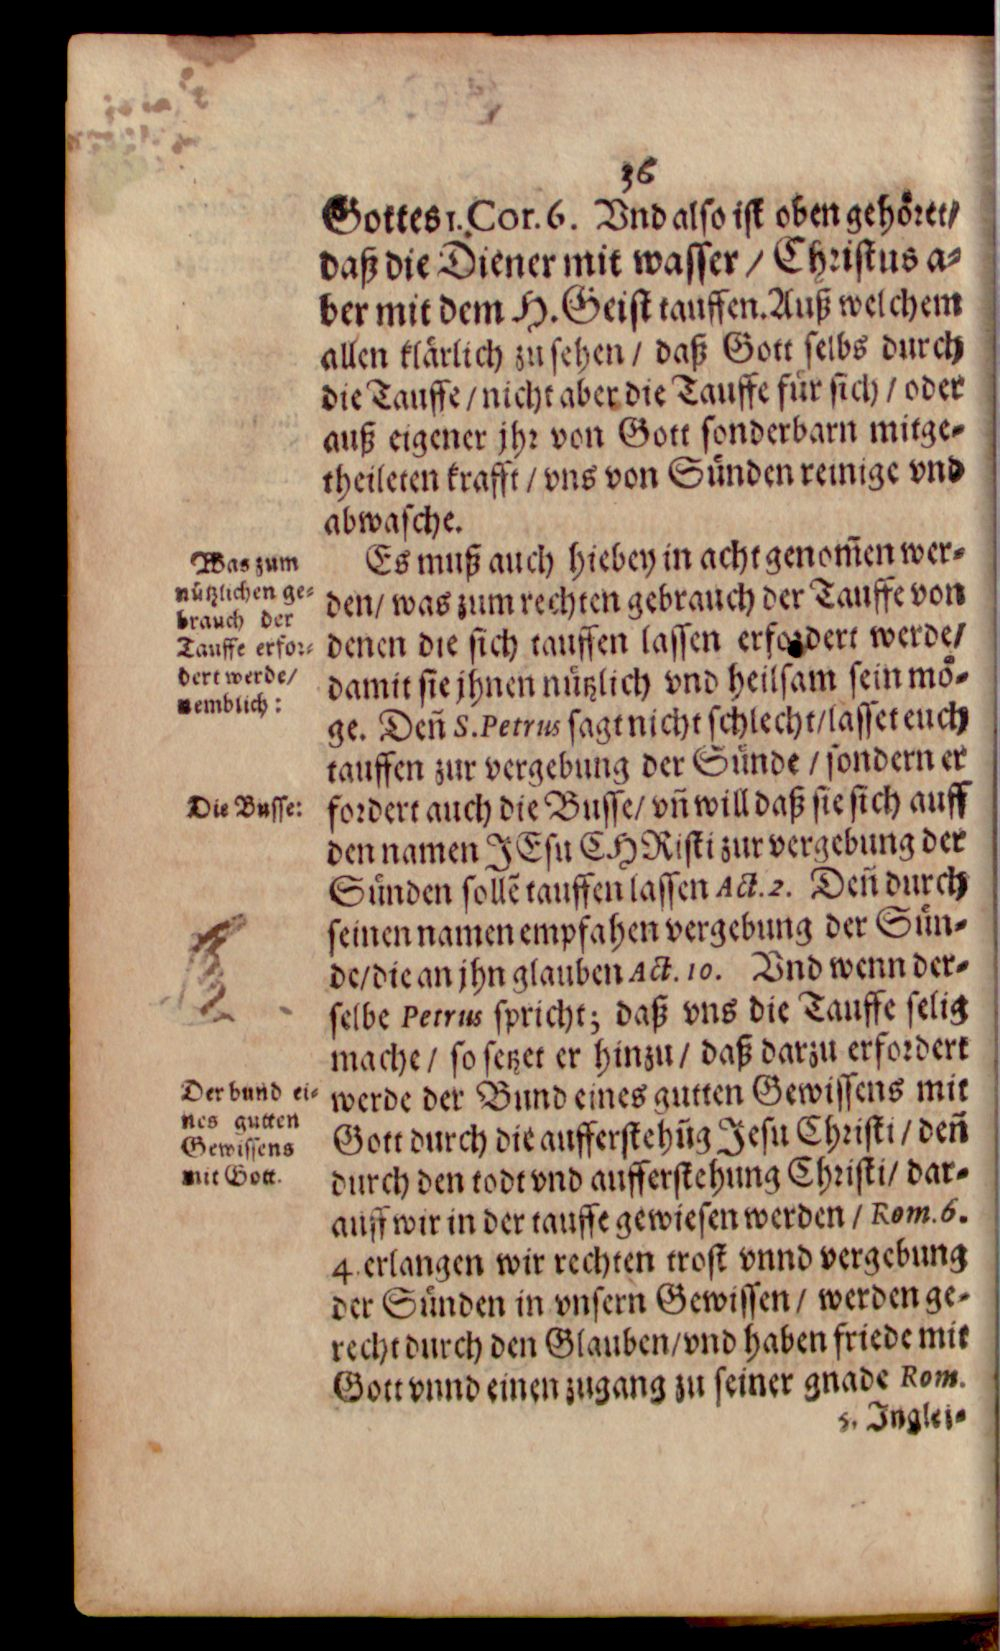 36
Gottes 1. Cor. 6. Vnd also ist oben gehöret/
daß die Diener mit wasser / Christus a-
ber mit dem H. Geist tauffen. Auß welchem
allen klärlich zu sehen / daß Gott selbs durch
die Tauffe / nicht aber die Tauffe für sich / oder
auß eigener jhr von Gott sonderbarn mitge-
theileten krafft / vns von Sünden reinige vnd
abwasche.
Es muß auch hiebey in acht genom̃en wer-
den / was zum rechten gebrauch der Tauffe von
denen die sich tauffen lassen erfordert werde/
damit sie jhnen nützlich vnd heilsam sein mö-
ge. Deñ S. Petrus sagt nicht schlecht / lasset euch
tauffen zur vergebung der Sünde / sondern er
fordert auch die Busse / vñ will daß sie sich auff
den namen JEsu CHRisti zur vergebung der
Sünden sollẽ tauffen lassen Act. 2. Deñ durch
seinen namen empfahen vergebung der Sün-
de / die an jhn glauben Act. 10. Vnd wenn der-
selbe Petrus spricht; daß vns die Tauffe selig
mache / so setzet er hinzu / daß darzu erfordert
werde der Bund eines gutten Gewissens mit
Gott durch die aufferstehũg Jesu Christi / deñ
durch den todt vnd aufferstehung Christi / dar-
auff wir in der tauffe gewiesen werden / Rom. 6.
4. erlangen wir rechten trost vnnd vergebung
der Sünden in vnsern Gewissen / werden ge-
recht durch den Glauben / vnd haben friede mit
Gott vnnd einen zugang zu seiner gnade Rom.
5. Inglei-
Was zum
nützlichen ge-
brauch der
Tauffe erfor-
dert werde/
nemblich:
Die Busse:
Der bund ei-
nes gutten
Gewissens
mit Gott.